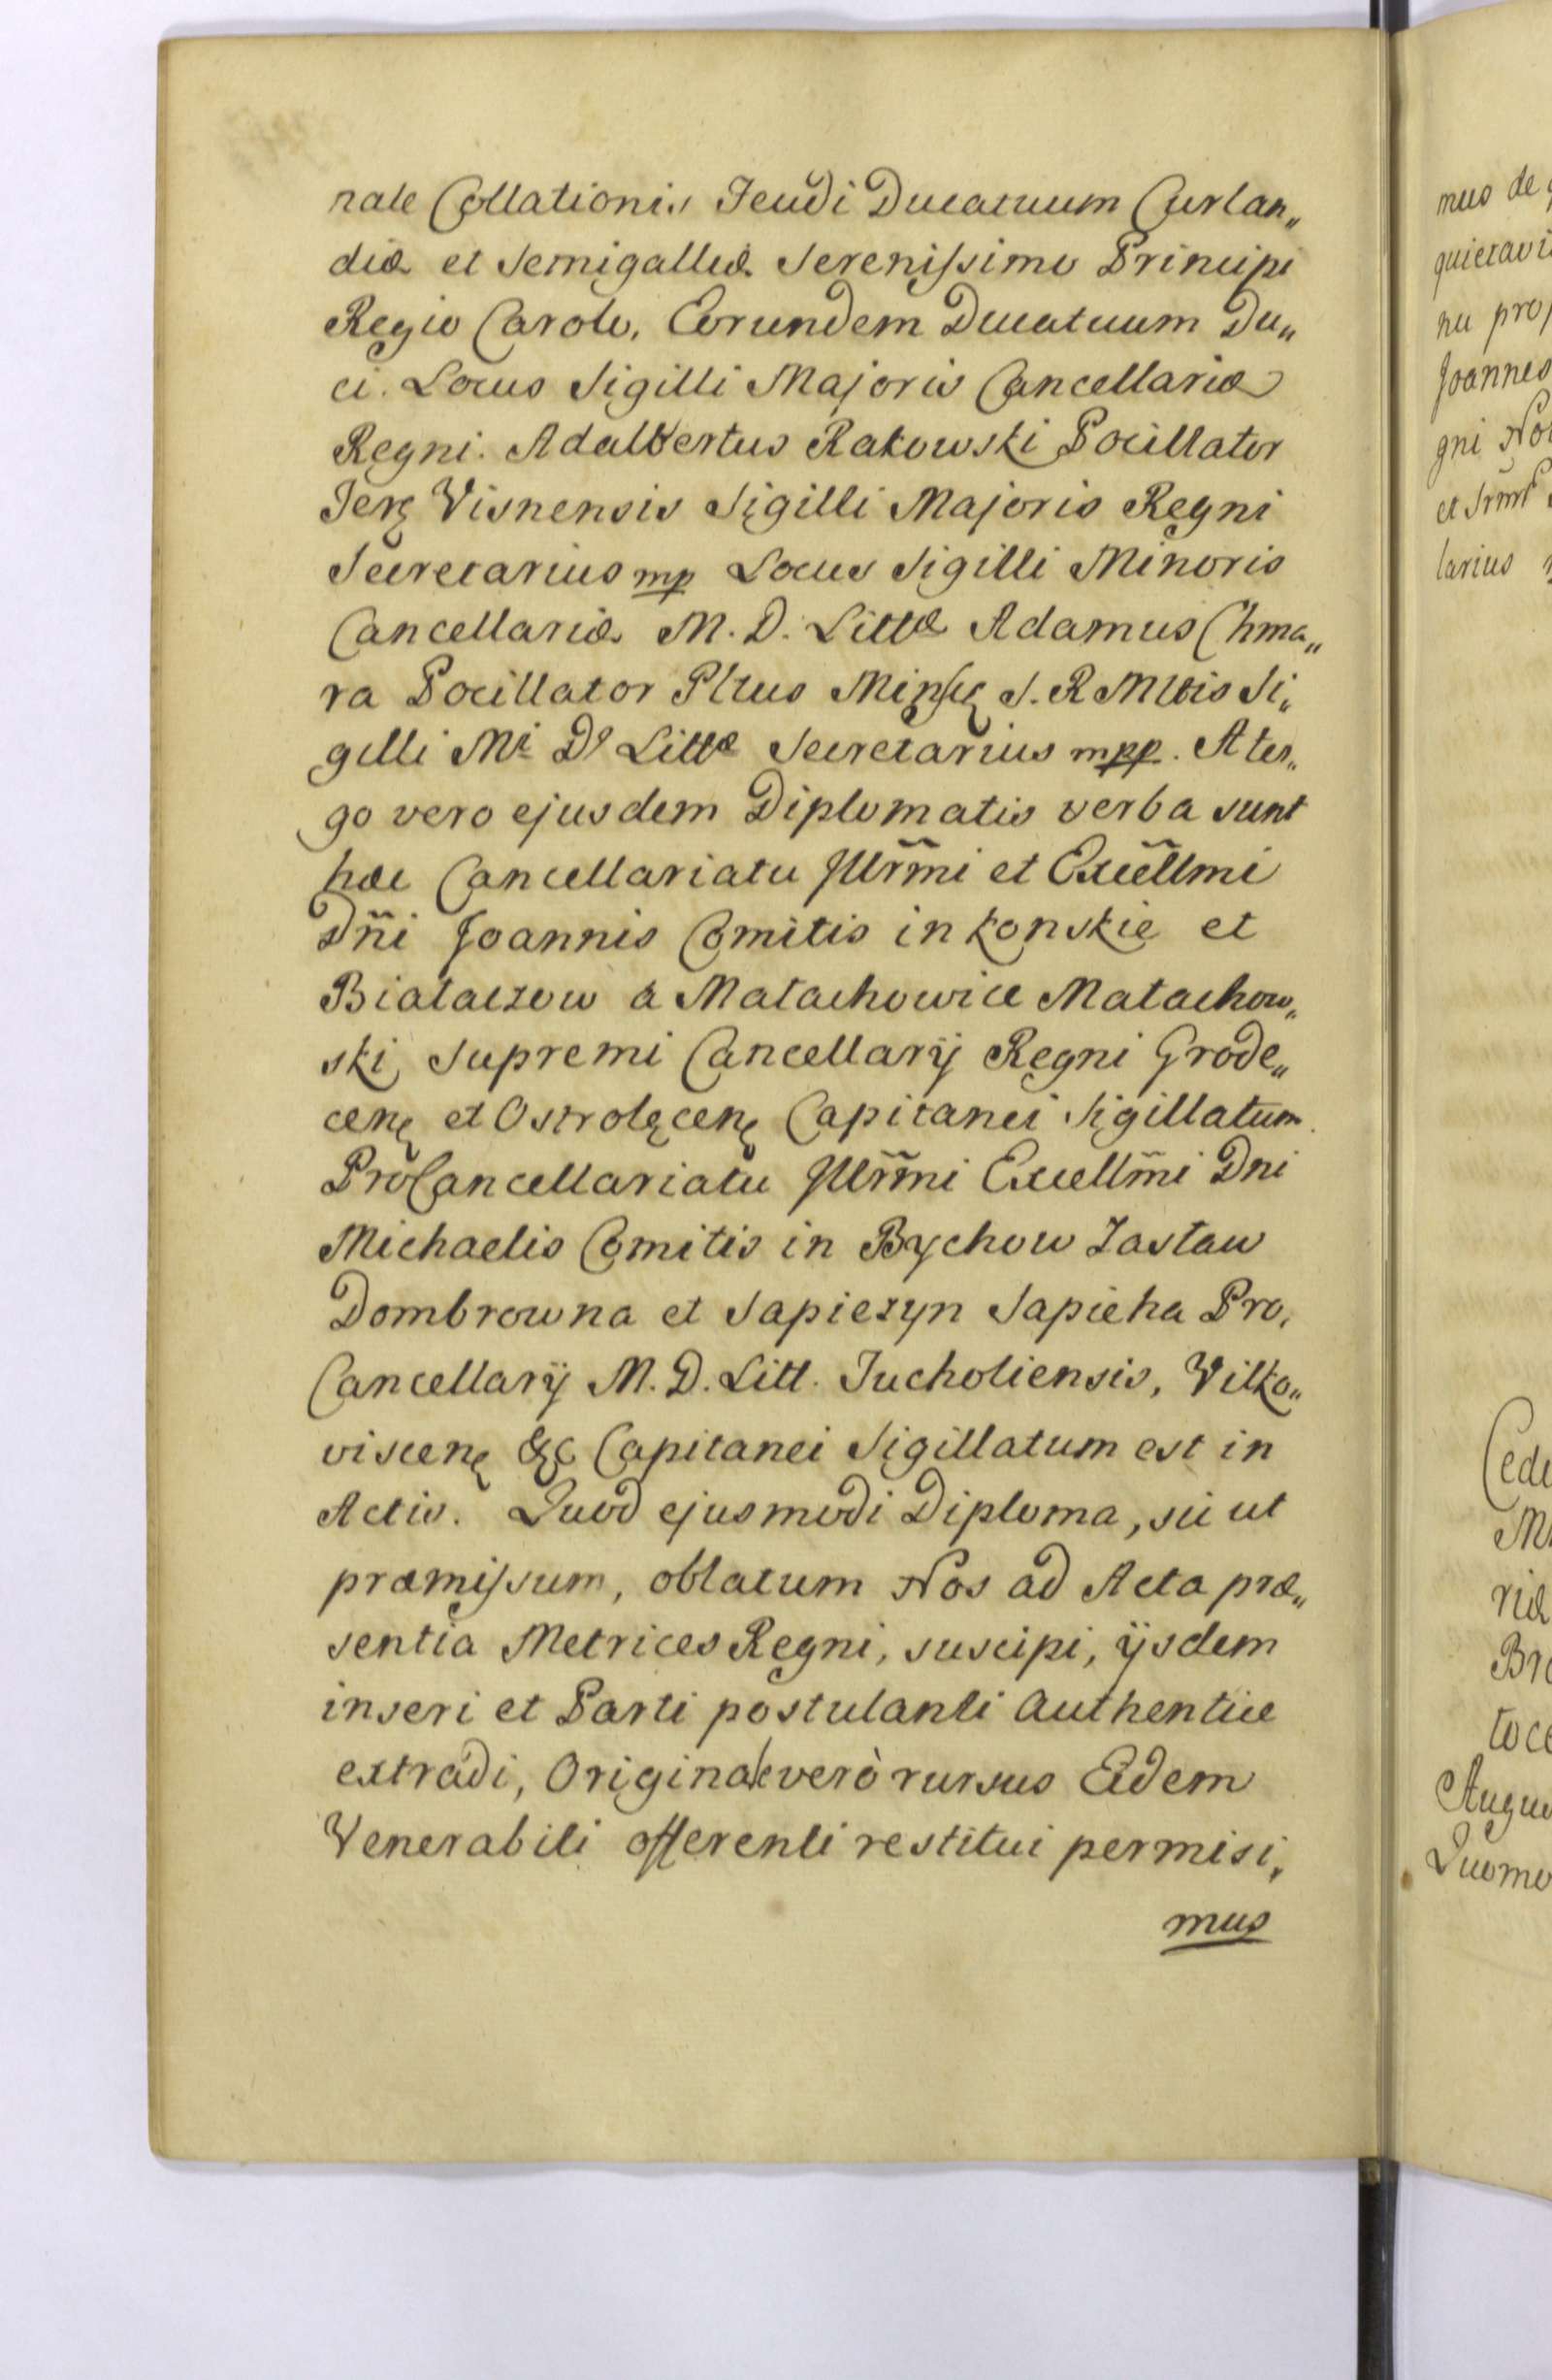 nale Collationis Feudi Ducatuum Curlan„
diæ et Semigalliæ Serenissimo Principi
Regio Carolo, Eorundem Ducatuum Du„
ci. Locus Sigilli Majoris Cancellariæ
Regni. Adalbertus Rakowski Pocillator
Terę Visnensis Sigilli Majoris Regni
Secretarius mp Locus Sigilli Minoris
Cancellariæ M. D. Littæ Adamus Chma„
ra Pocillator Pltus Minscę S. R Mttis Si„
gilli Mi Ds Littæ Secretarius mpp. A ter„
go vero ejusdem Diplomatis verba sunt
hæc Cancellariatu Illrm̃i et Excellm̃i
Dñi Joannis Comitis in Konskie et
Białaczow a Małachowice Małachow„
ski Supremi Cancellarÿ Regni Grode„
cenę et Ostrolęcenę Capitanei Sigillatum.
ProCancellariatu Illrm̃i Excellm̃i Dni
Michaelis Comitis in Bychow Zasław
Dombrowna et Sapiezyn Sapieha Pro,
Cancellarÿ M. D. Litt. Tucholiensis, Vilko„
viscenę &c Capitanei Sigillatum est in
Actis. Quod ejusmodi Diploma, sic ut
præmissum, oblatum Nos ad Acta præ„
sentia Metrices Regni, suscipi, ÿsdem
inseri et Parti postulanti authentice
extradi, Originale verò rursus Eidem
Venerabili offerenti restitui permisi„
mus
mus de
quietavi
nu pro
Joannes
gni No
et
larius
Cede
riæ
Bre
toce
Augus
Quomo